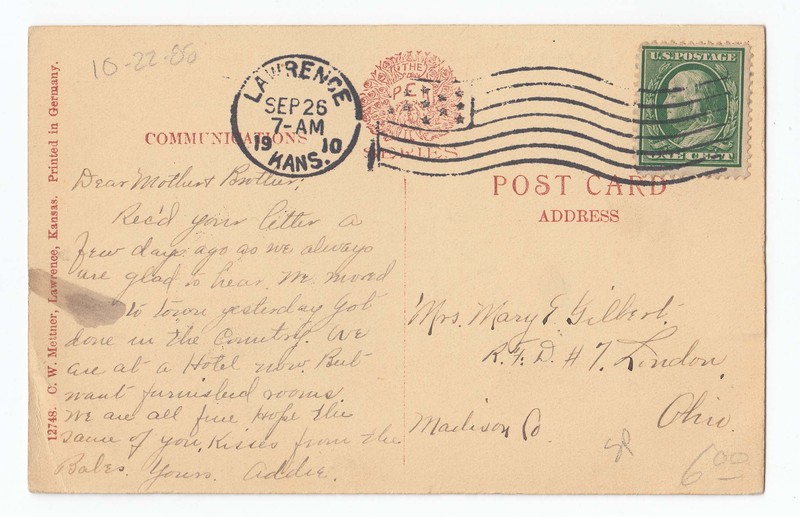 10-22-88
LAWRENCE
SEP 26
7-AM
1910
KANS.
IN THE
PEN
SERIES
U.S. POSTAGE
ONE CENT
COMMUNICATIONS
POST CARD
ADDRESS
12748. C. W. Mettner, Lawrence, Kansas. Printed in Germany.
Dear Mother & Brother,
Rec'd your letter a
few days ago as we always
are glad to hear. We moved
to town yesterday got
done in the Country. We
are at a Hotel now. But
want furnished rooms.
We are all fine Hope the
same of you. Kisses from the
Babes. Yours. Addie.
Mrs. Mary E. Gilbert.
R.F.D. # 7. London,
Ohio.
Madison Co
6.00